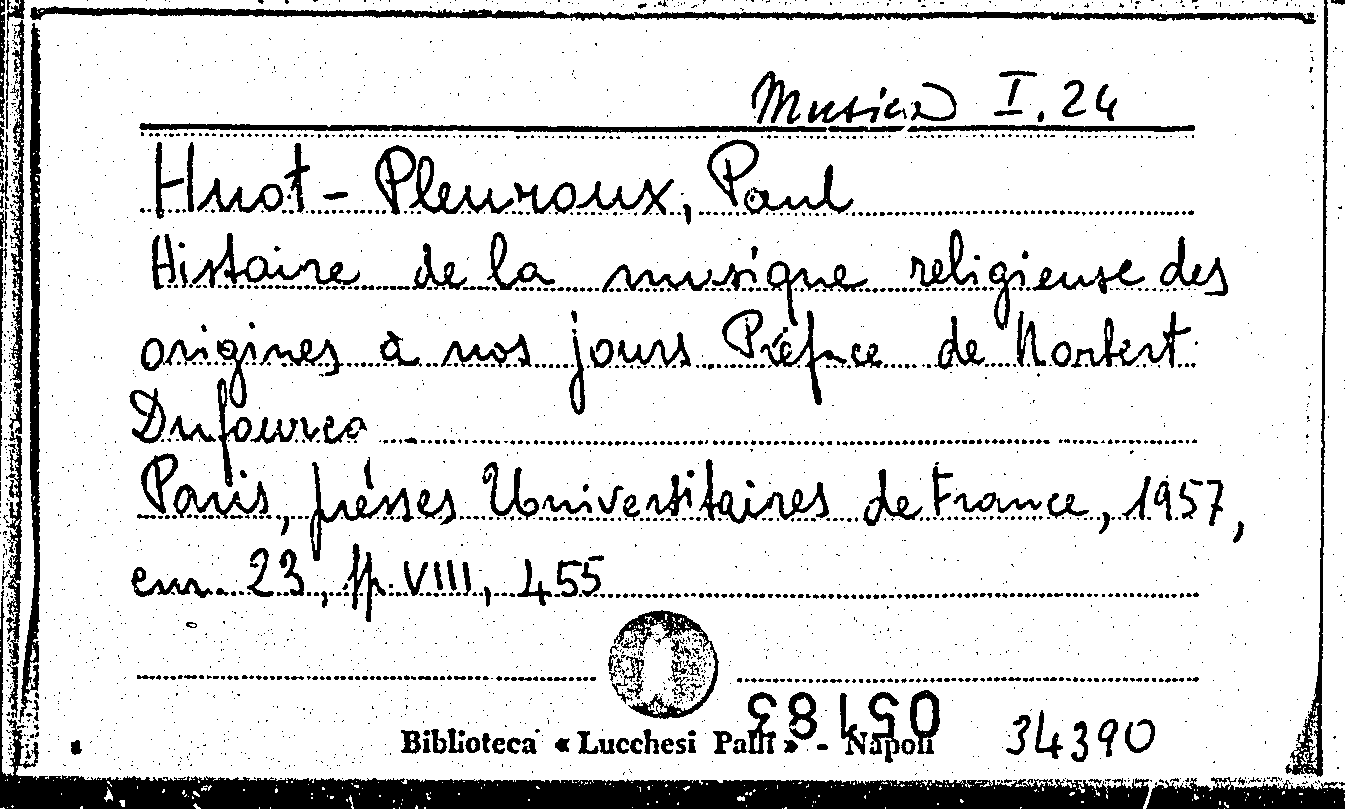 Musica I.24
Huot-Pleuroux, Paul
Histoire de la musique religieuse des
origines à nos jours Préface de Norbert
Dufourcq
Paris, présses Universitaires de France, 1957,
cm. 23, pp. VIII, 455
05183
Biblioteca « Lucchesi Palli » - Napoli 34390